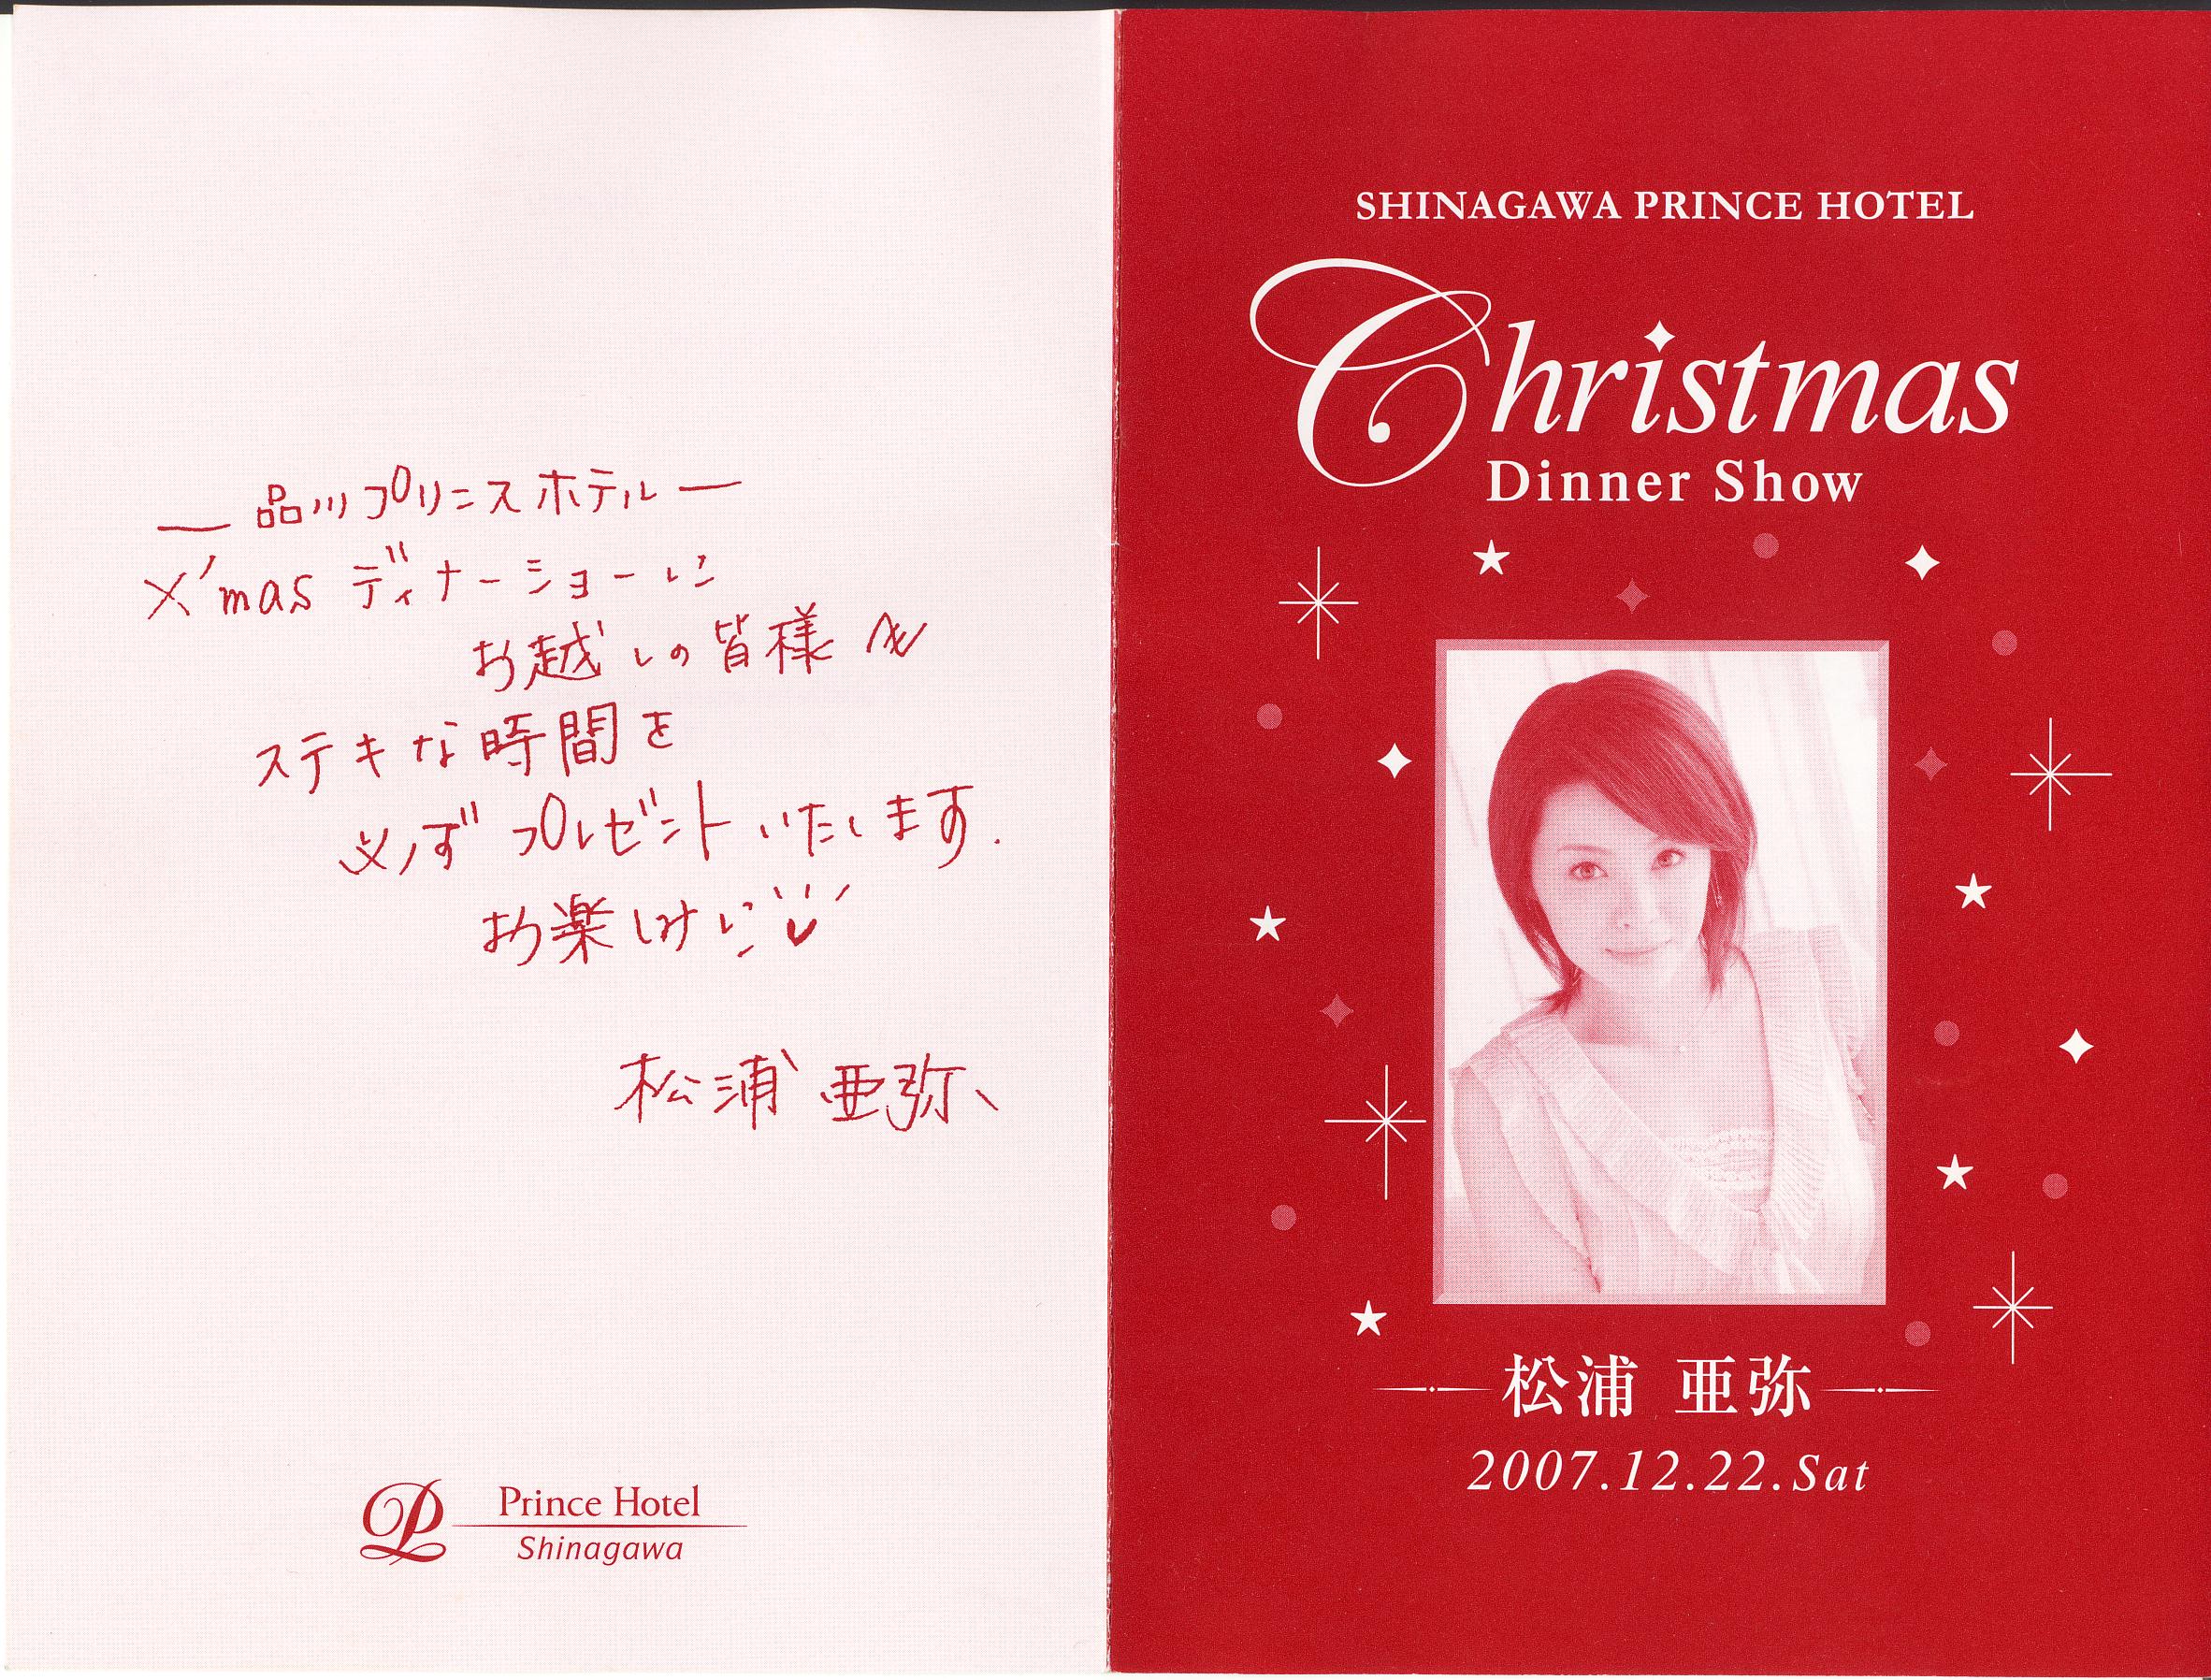 ― 品川プリンスホテル ―
X'mas ディナーショーに
お越しの皆様へ
ステキな時間を
必ずプレゼントいたします.
お楽しみに
松浦 亜弥
Prince Hotel
Shinagawa
SHINAGAWA PRINCE HOTEL
Christmas
Dinner Show
松浦 亜弥
2007.12.22.Sat